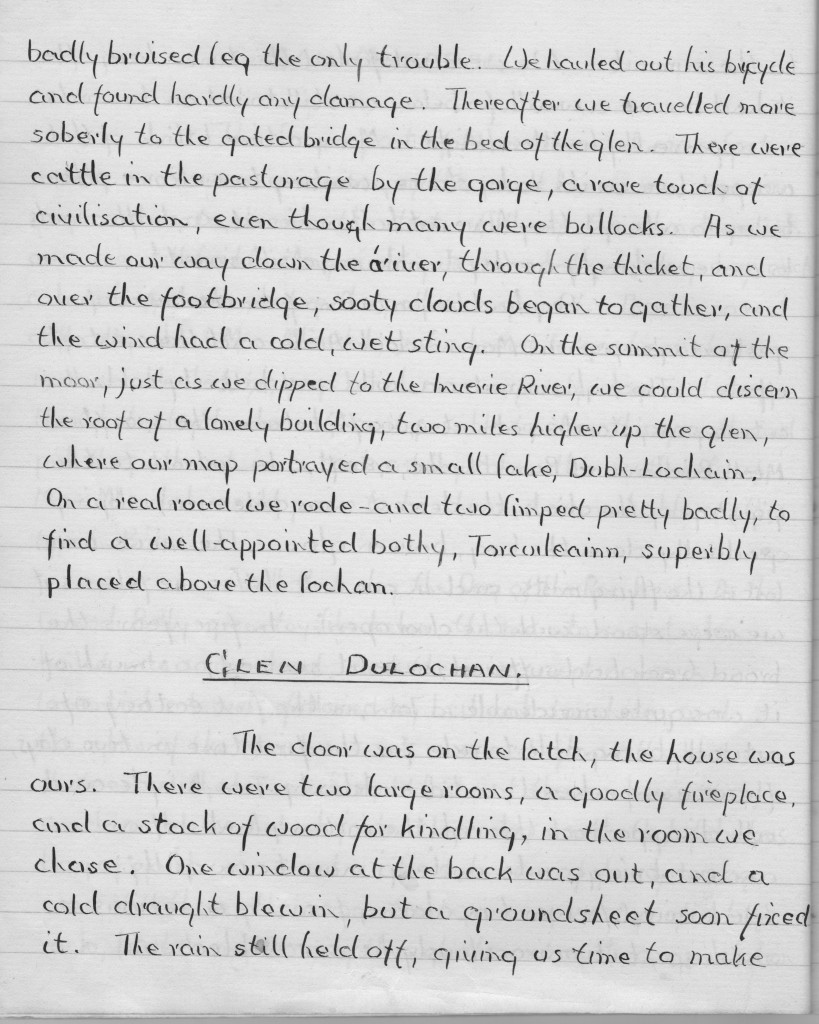 badly bruised leg the only trouble. We hauled out his bicycle
and found hardly any damage. Thereafter we travelled more
soberly to the gated bridge in the bed of the glen. There were
cattle in the pasturage by the gorge, a rare touch of
civilisation, even though many were bullocks. As we
made our way down the river, through the thicket, and
over the footbridge, sooty clouds began to gather, and
the wind had a cold, wet sting. On the summit of the
moor, just as we dipped to the Inverie River, we could discern
the roof of a lonely building, two miles higher up the glen,
where our map portrayed a small lake, Dubh-Lochain.
On a real road we rode - and two limped pretty badly, to
find a well-appointed bothy, Torcuileainn, superbly
placed above the lochan.
GLEN DULOCHAN.
The door was on the latch, the house was
ours. There were two large rooms, a goodly fireplace,
and a stock of wood for kindling, in the room we
chose. One window at the back was out, and a
cold draught blew in, but a groundsheet soon fixed
it. The rain still held off, giving us time to make